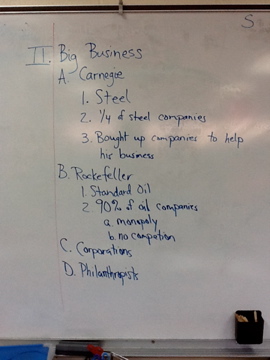 S
II. Big Business
A. Carnegie
1. Steel
2. 1/4 of steel companies
3. Bought up companies to help
his business
B. Rockefeller
1. Standard Oil
2. 90% of oil companies
a. monopoly
b. no compation
C. Corporations
D. Philanthropists